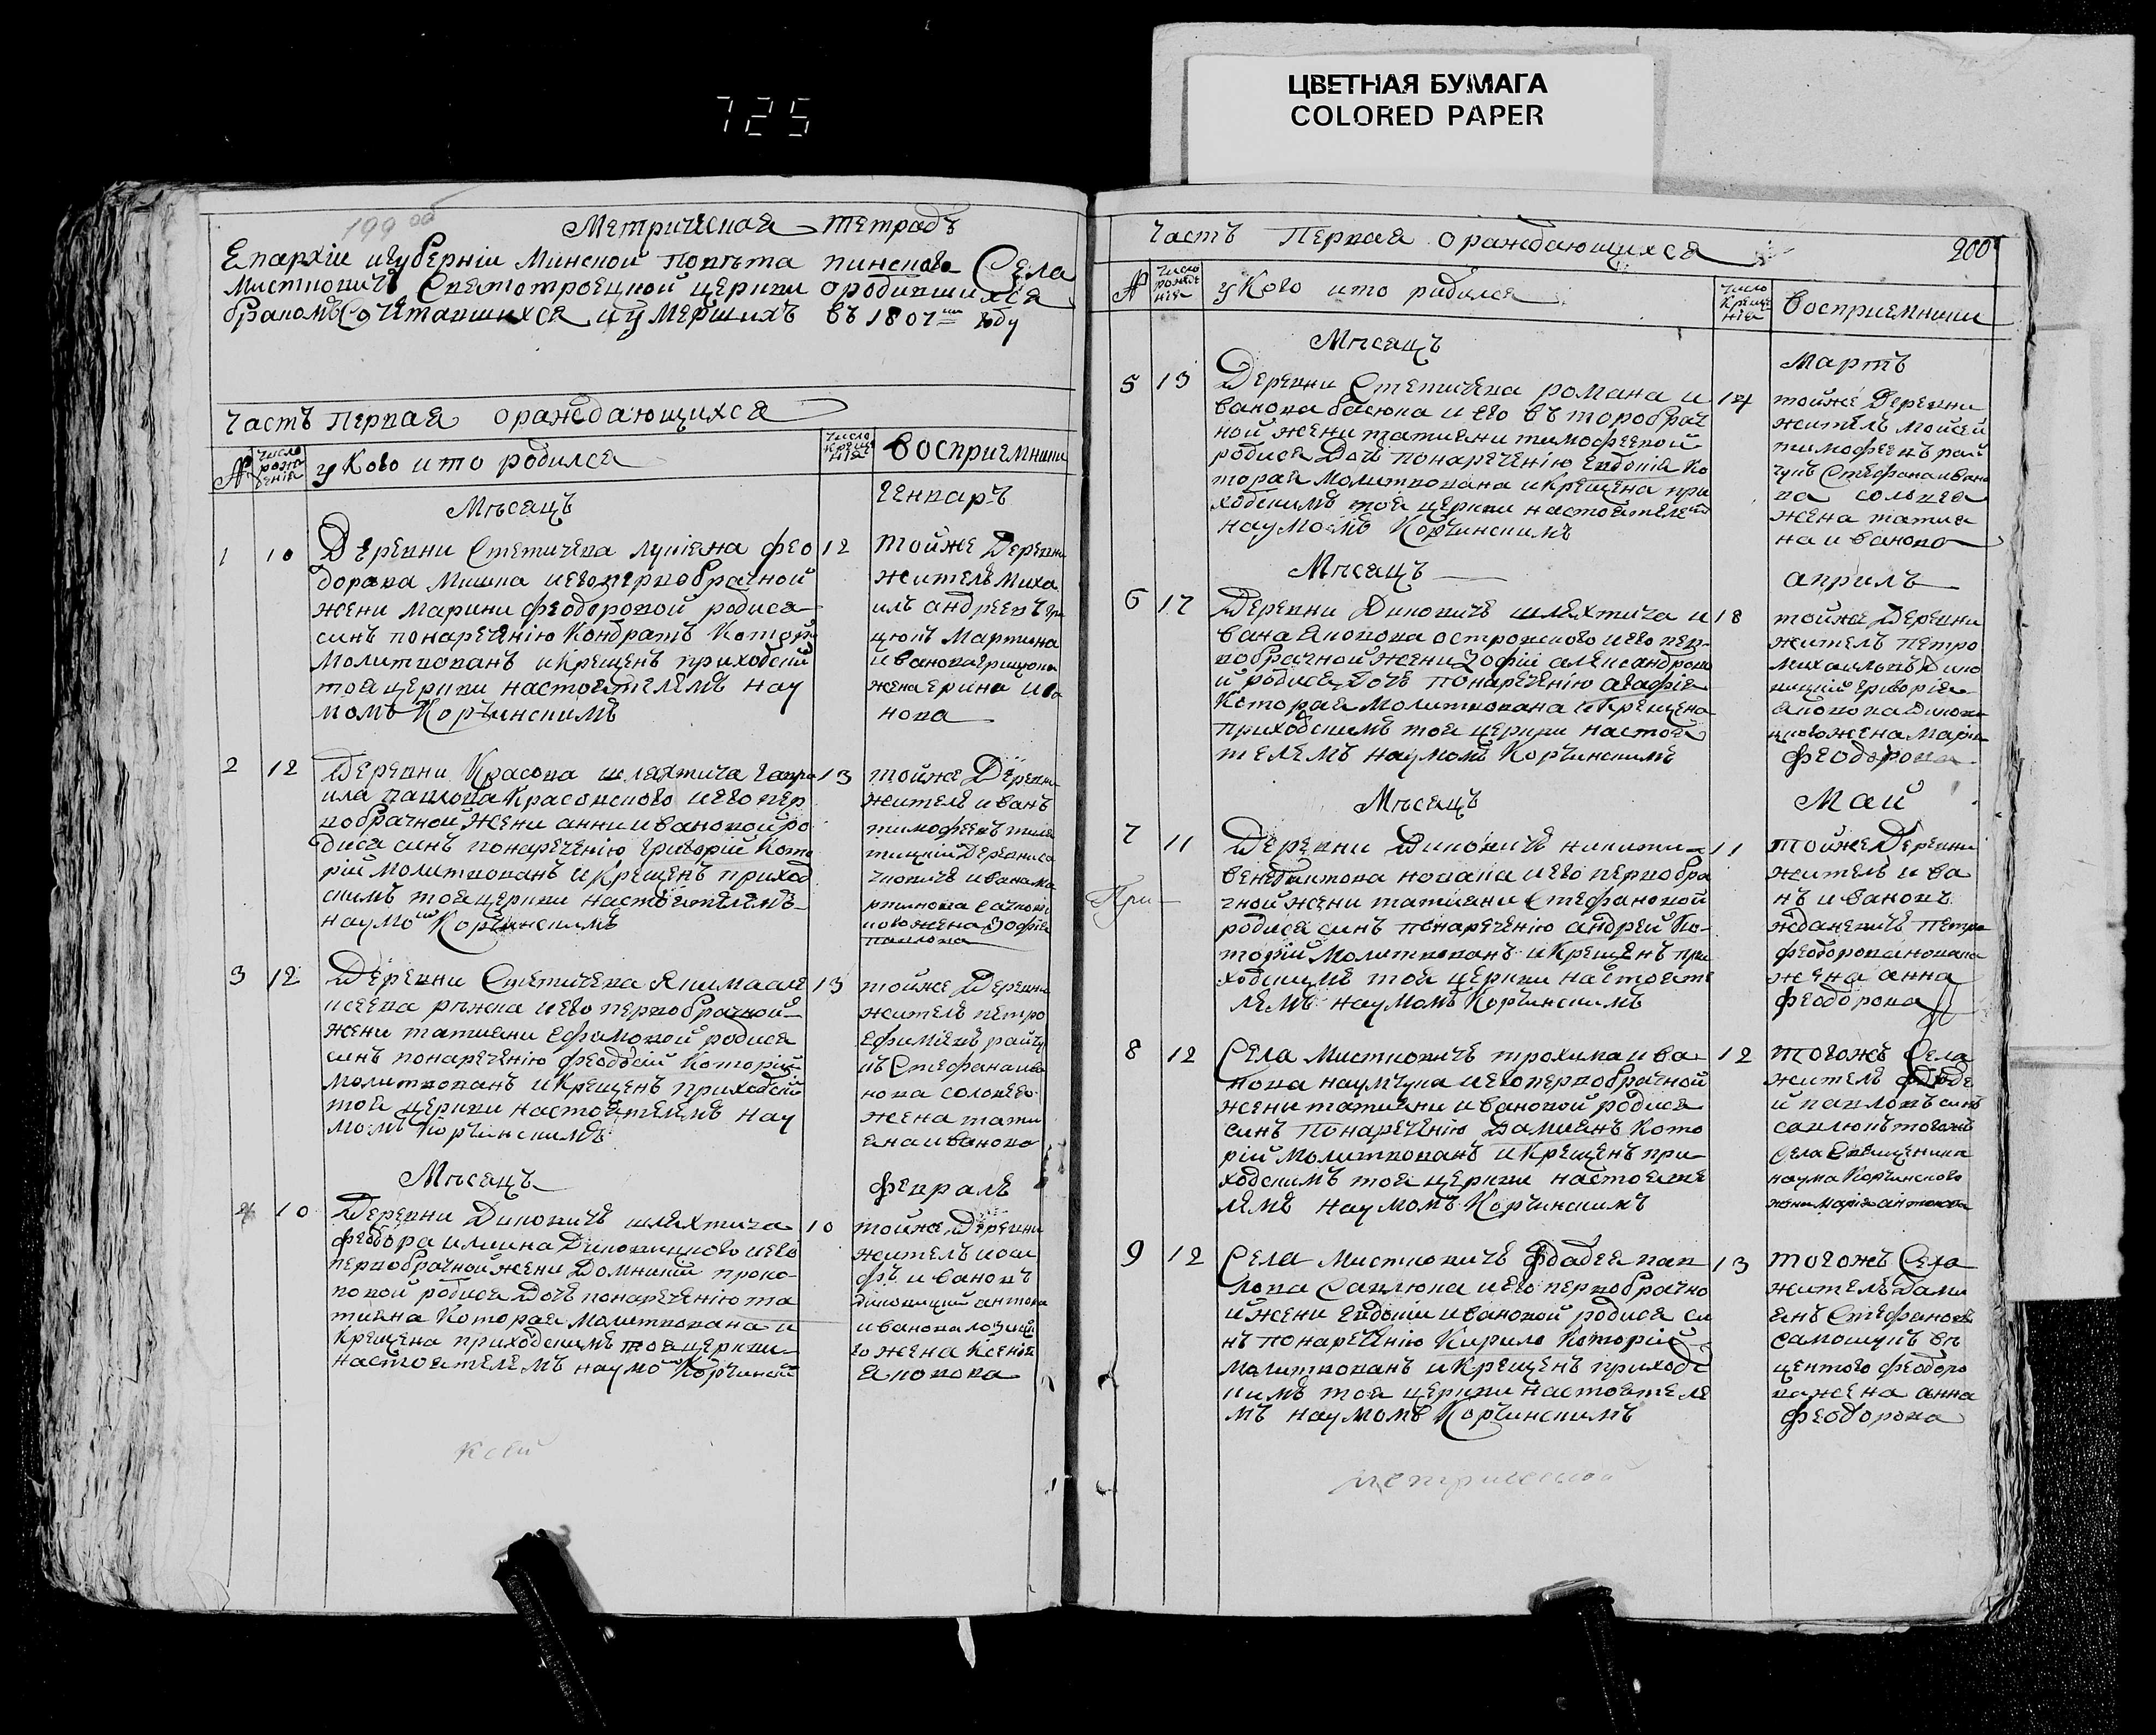 725
ЦВЕТНАЯ БУМАГА
COLORED PAPER
199 об
Метрическая тетрадъ
Епархіи игуберніи Минской повѣта пинскаго Села
Мистковичъ Святотроецкой церкви ородившихся
бракомъ Сочетавшихся иумершихъ въ 1807мъ году
Частъ Первая ораждающихся
№
число рожденія
у Кого икто родился
число крещенія
восприемники
Мѣсяцъ
Генваръ
1 10
Деревни Стетичева лукіяна фео
дорова Мишка иегопервобрачной
жени Марини феодоровой родися
синъ понаречению Кондратъ Которій
Молитвованъ икрещенъ приходскім
тоя церкви настоятелемъ нау
момъ Корчинскимъ
12
тойже Деревни
жителъ миха
илъ андреевъ гри
цюкъ Мартина
иванова грицюка
жена ерина ива
нова
2 12
Деревни Красова шляхтича гаври
ила павлова Красовского иего пер
вобрачной жени анни ивановой ро
дися синъ понаречению григорій Кото
рій молитвованъ икрещенъ приход
скимъ тоя церкви настоятелемъ
наумомъ Корчинскимъ
13
тойже Деревни
жителъ иванъ
тимофеевъ
иванова
жена Зофія
павлова
3 12
Деревни Стетичева Якима але
ксеева рижка иего первобрачной
жени татияни ефимовой родися
синъ понаречению феодосій Которій
Молитвованъ икрещенъ приходскім
тоя церкви настоятелемъ нау
момъ Корчинскимъ
13
тойже Деревни
жителъ петро
ефимовъ райчу
къ Стефана ива
нова соловея
жена тати
яна иванова
Мѣсяцъ
февралъ
4 10
Деревни Диковичъ шляхтича
феодора илина Диковицкого иего
первобрачной жени Домникии проко
повой родися Дочъ понаречению та
тияна Которая Молитвована и
крещена приходскимъ тоя церкви
настоятелемъ наумомъ Корчинскимъ
10
тойже Деревни
жителъ иоси
фъ ивановъ
диковицкий антона
иванова
го жена Ксения
Яковова
Частъ Первая ораждающихся
200
№
число рожденія
у Кого икто родился
число Крещенія
восприемники
Мѣсяцъ
Мартъ
5 13
Деревни Стетичева романа и
ванова басюка иего второбрач
ной жени татияни тимофеевой
родися Доч понаречению евдокія ко
торая Молитвована икрещена при
ходскимъ тоя церкви настоятелемъ
наумомъ Корчинскимъ
14
тойже Деревни
жителъ мойсей
тимофеевъ рай
чукъ Стефана ивано
ва соловея
жена татия
на иванова
Мѣсяцъ
априлъ
6 17
Деревни Диковичъ шляхтича и
вана Яковова островского иего пер
вобрачной жени Зофіи александрово
й родися Дочъ понаречению агафія
Которая Молитвована икрещена
приходскимъ тоя церкви настоя
телемъ наумомъ Корчинскимъ
18
тойже Деревни
жителъ петро
михаиловъ Дико
вицкій григорія
Яковова Дикови
цкого жена Марія
феодорова
Мѣсяцъ
Май
7 11
Деревни Диковичъ никити
венедиктова новака иего первобра
чной жени татияни Стефановой
родися синъ понаречению андрей Ко
торій Молитвованъ икрещенъ при
ходскимъ тоя церкви настояте
лемъ наумомъ Корчинскимъ
11
тойже Деревни
жителъ ива
нъ ивановъ
жданевичъ петра
феодорова новака
жена анна
феодорова
При
8 12
Села Мистковичъ трохима ива
нова наумчука иего первобрачной
жени татияни ивановой родися
синъ понаречению Дамиянъ Кото
рій Молитвованъ икрещенъ при
ходскимъ тоя церкви настояте
лемъ наумомъ Корчинскимъ
12
тогожъ Села
жителъ фаде
й павловъ синъ
савлюкъ тогожъ
села Священика
наума Корчинского
жена Марія антонова
9 12
Села Мистковичъ фадея пав
лова Савлюка иего первобрачно
й жени евдокіи ивановой родися си
нъ понаречению Кирило Которій
молитвованъ икрещенъ приходс
кимъ тоя церкви настоятеле
мъ наумомъ Корчинскимъ
13
тогожъ Села
жителъ Дами
янъ Стефановъ
феодоро
ва жена анна
феодорова
ксей
метрической